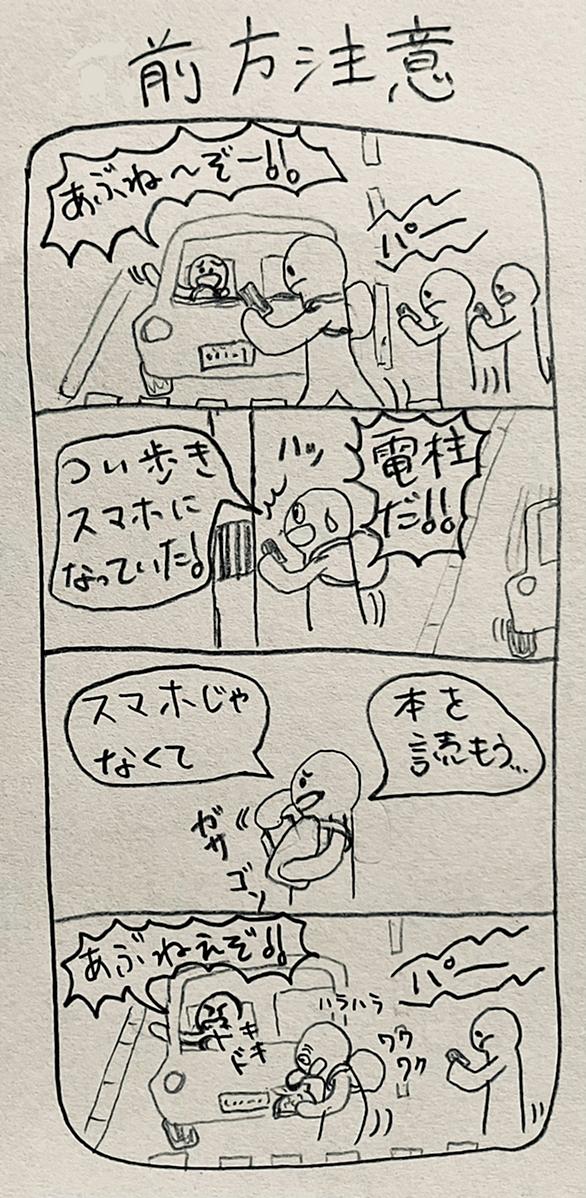 前方注意
あぶね～ぞー!!
パー
電柱
だ!!
ハッ
つい歩き
スマホに
なっていた!
本を
読もう…
スマホじゃ
なくて
ガサ
ゴソ
あぶねえぞ!!
パー
ハラハラ
ワク
ワク
ドキ